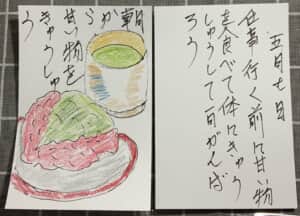 朝
から
甘い物を
きゅうしゅ
う
五月七日
仕事行く前に甘い物
を食べて体にきゅう
しゅうして一日がんば
ろう